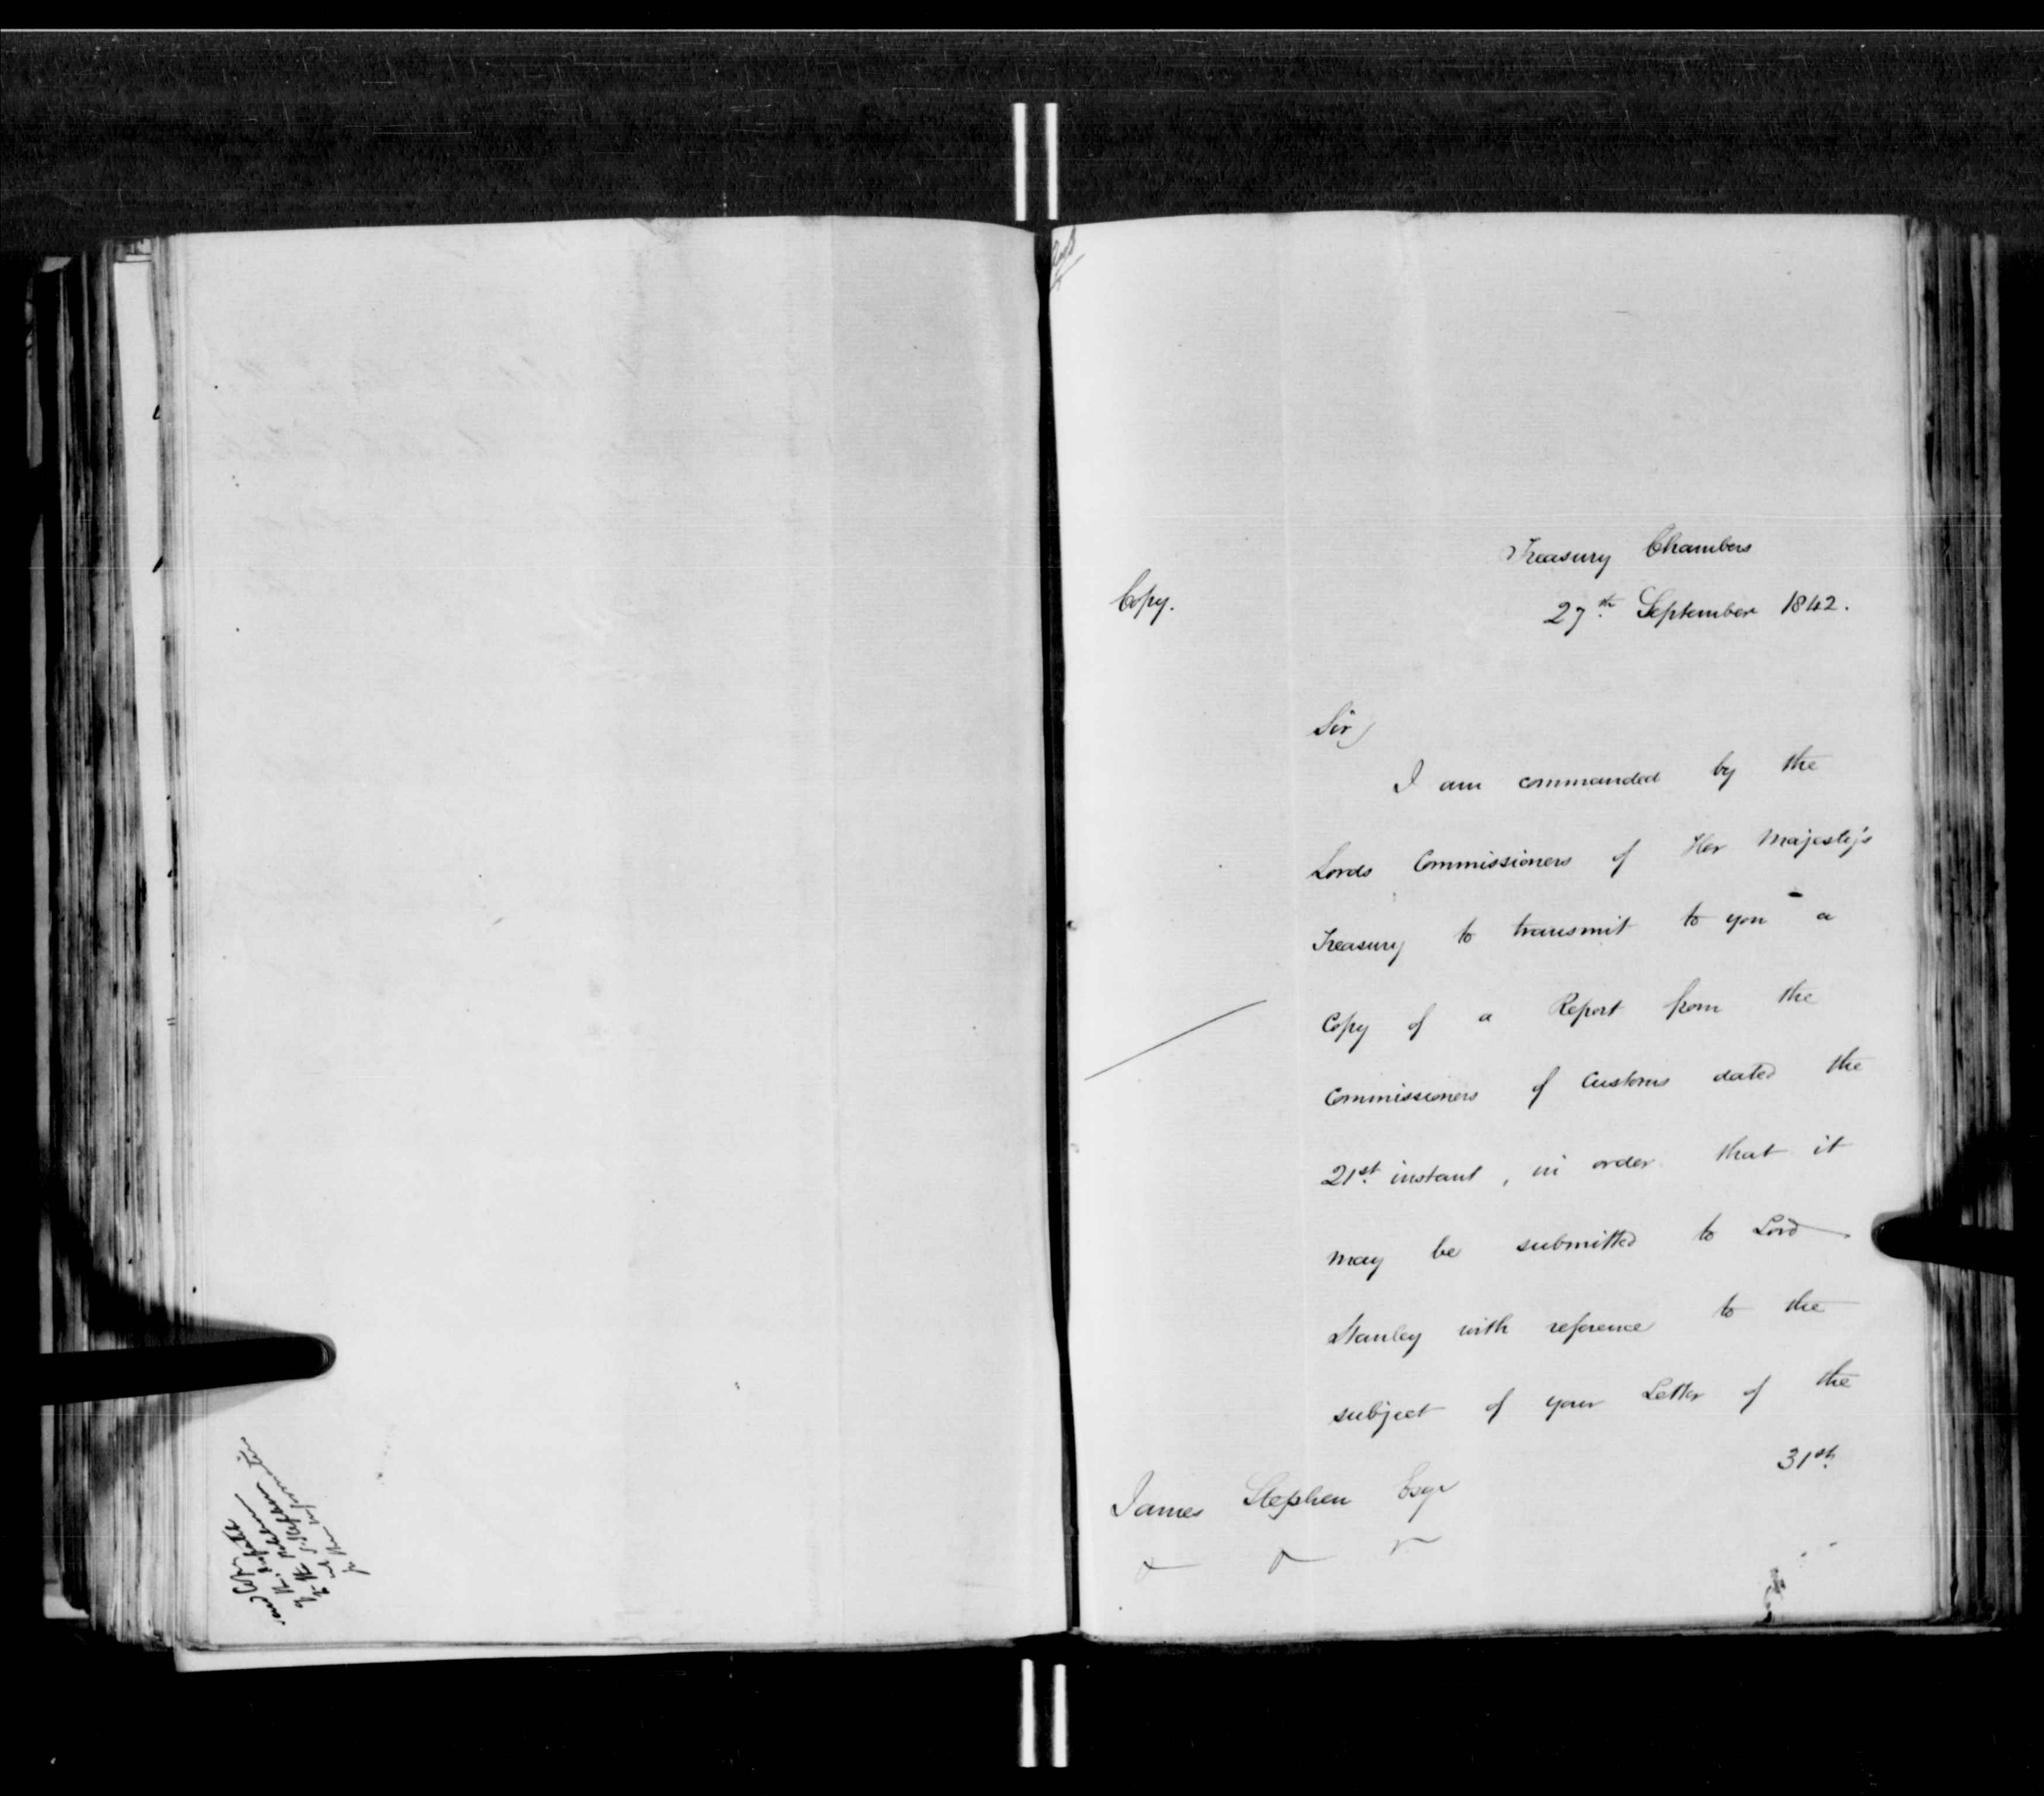 Treasury Chambers
Copy.
27th September 1842.
Sir,
I am commanded by the
Lords Commissioners of Her Majesty's
Treasury to transmit to you a
Copy of a Report from the
Commissioners of Customs dated the
21st instant, in order that it
may be submitted to Lord
Stanley with reference to the
subject of your Letter of the
31st
James Stephen Esqr